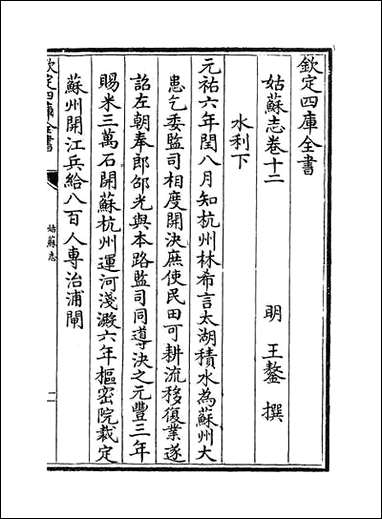 欽定四庫全書
姑蘇志卷十二
明 王鏊 撰
水利下
元祐六年閏八月知杭州林希言太湖積水為蘇州大
患乞委監司相度開決庶使民田可耕流移復業遂
詔左朝奉郎邵光與本路監司同導決之元豐三年
賜米三萬石開蘇杭州運河淺澱六年樞密院裁定
蘇州開江兵給八百人專治浦閘
欽定四庫全書
姑蘇志
二